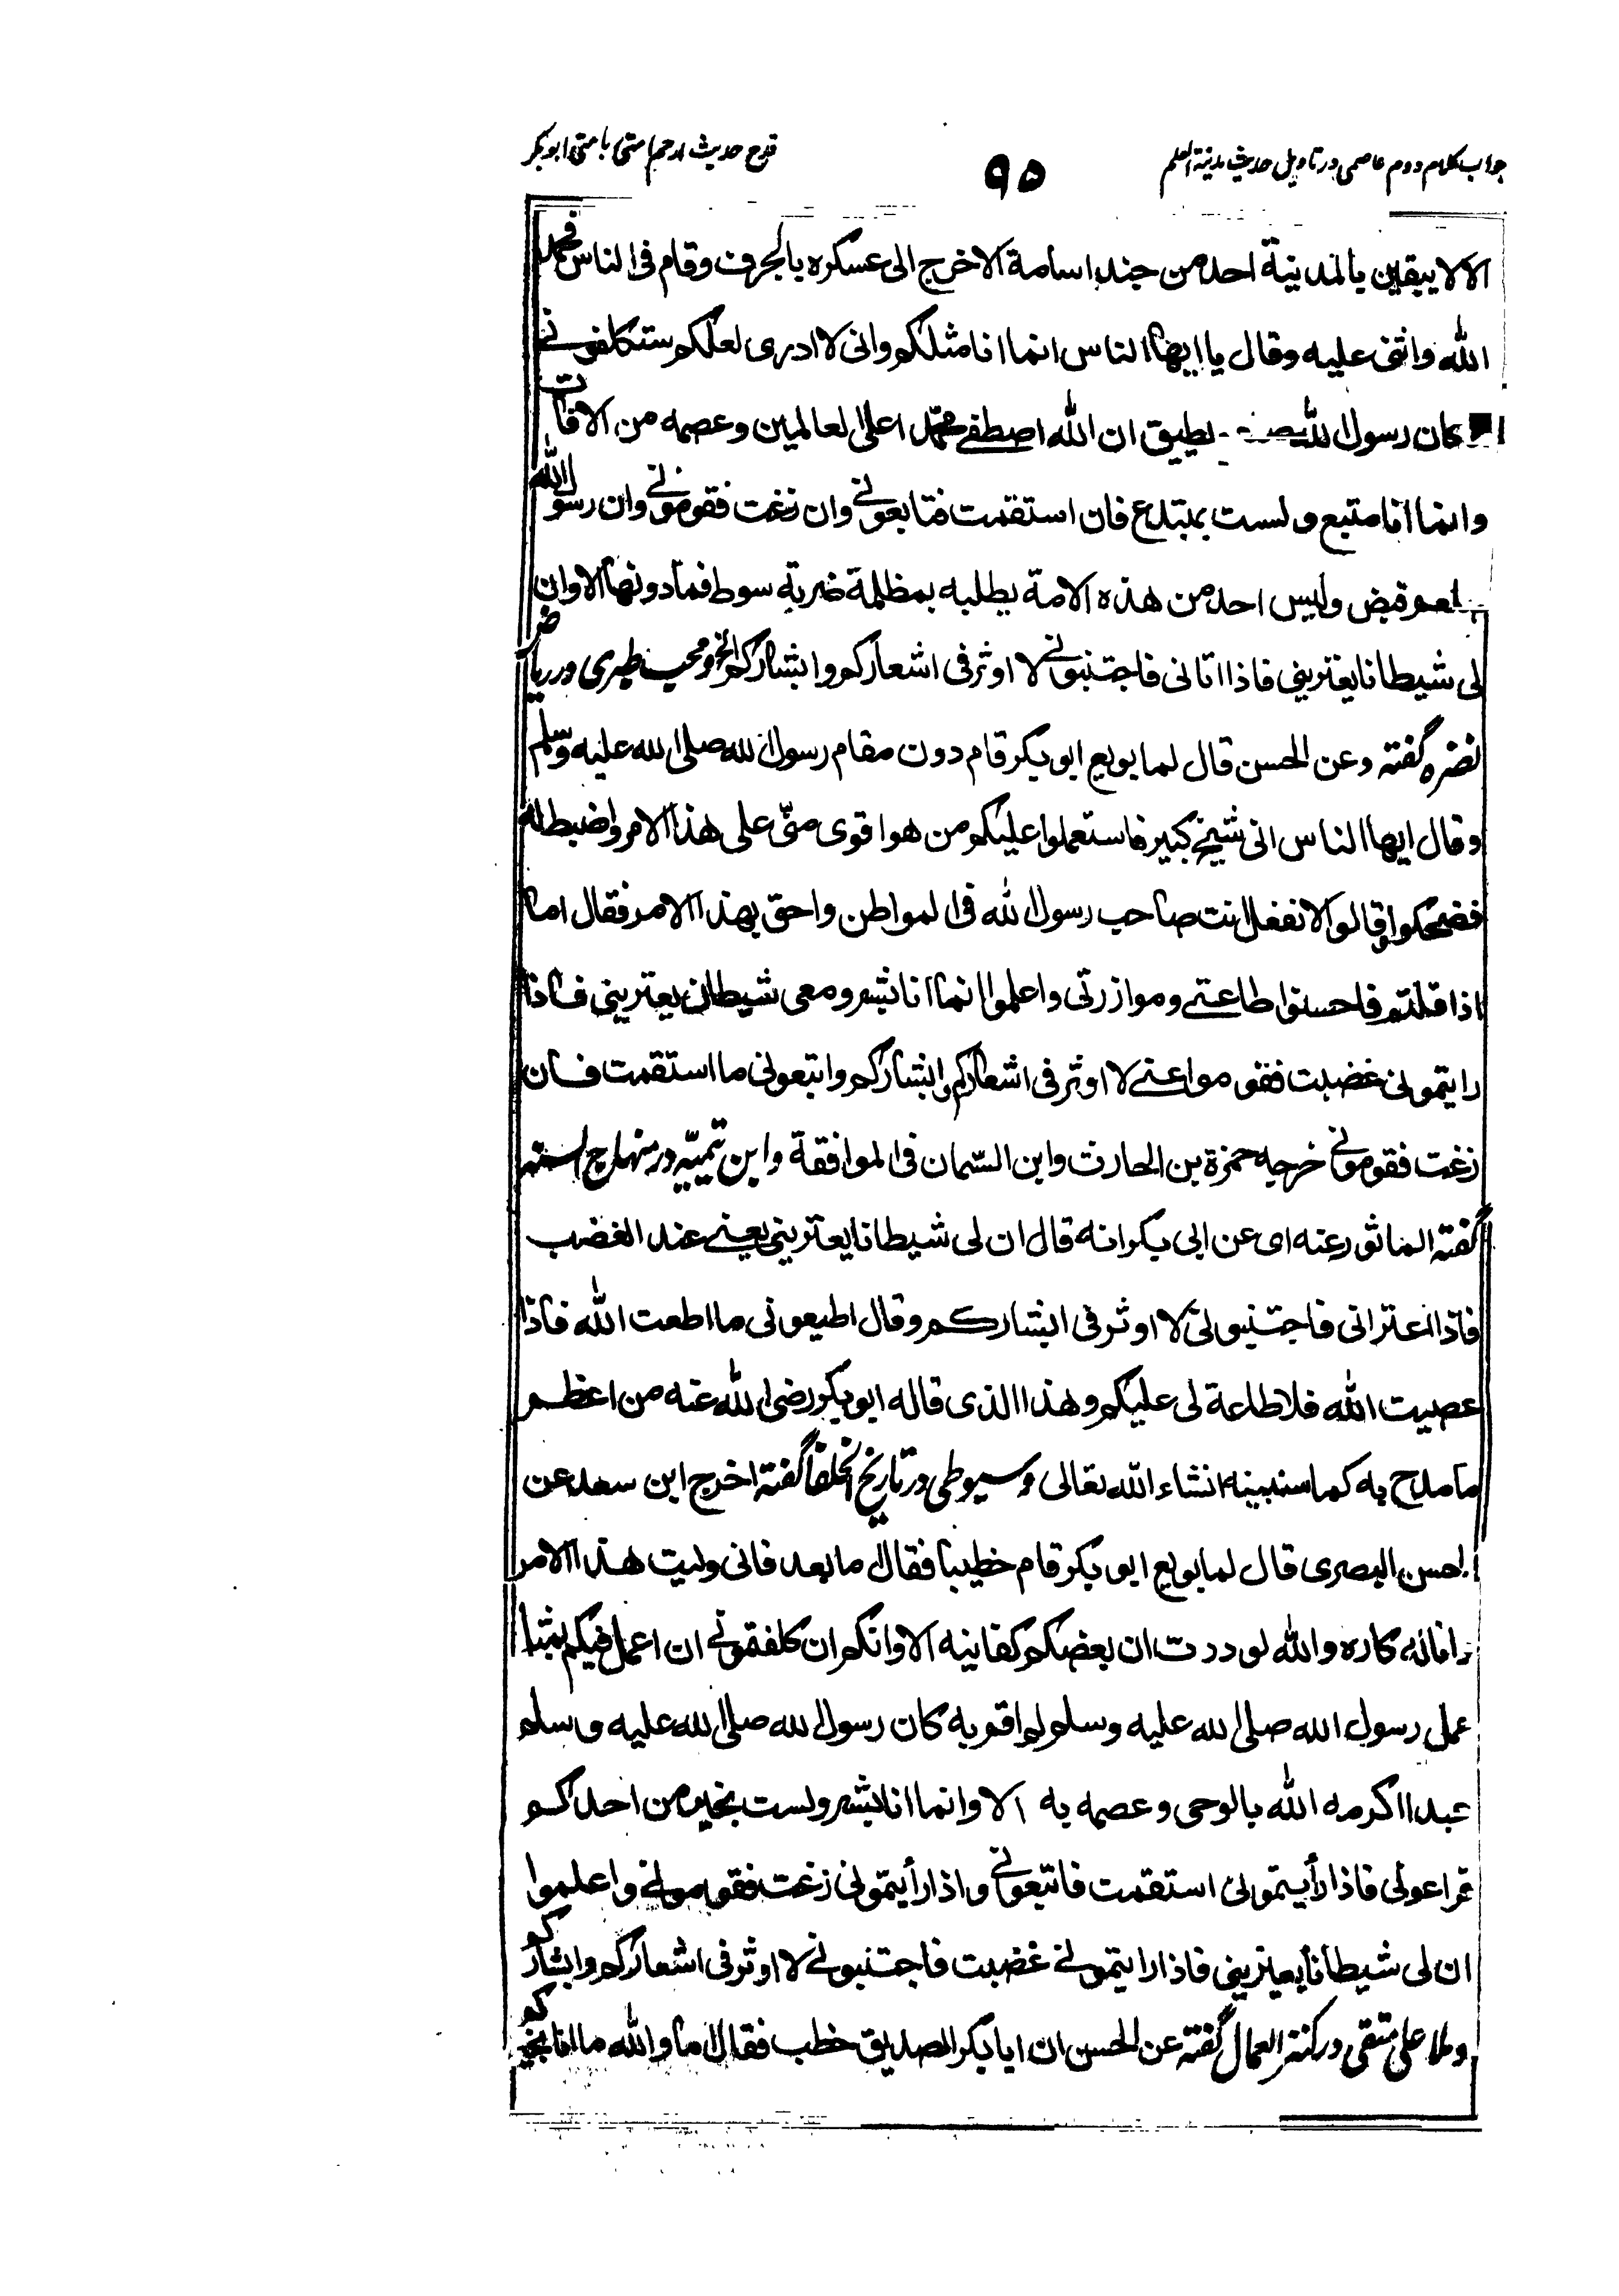 جواب کلام دوم عاصمی در تاویل حدیث مدینة العلم
۹۵
قدح حدیث ارحم امتی بامتی ابوبکر
الا لا یبقین بالمدینة احد من جند اسامة الا خرج الی عسکره بالجرف وقام فی الناس فحمد
الله واثنی علیه وقال یا ایها الناس انما انا مثلکم وانی لا ادری لعلکم ستکلفونی
کان رسول الله یطیق ان الله اصطفی محمّدا علی العالمین وعصمه من الآفات
وانما انا متبع ولست بمبتدع فان استقمت فتابعونی وان زغت فقومونی وان رسول الله
صلعم قبض ولیس احد من هذه الامة یطلبه بمظلمة ضربة سوط فما دونها الا وان
لی شیطانا یعترینی فاذا اتانی فاجتنبونی لا اوثر فی اشعارکم وابشارکم الخ ومحب طبری در ریاض
نضره گفته وعن الحسن قال لما بویع ابو بکر قام دون مقام رسول الله صلی الله علیه وسلم
وقال ایها الناس انی شیخ کبیر فاستعملوا علیکم من هو اقوی منّی علی هذا الامر واضبط له
فضحکوا وقالوا لا نفعل انت صاحب رسول الله فی المواطن واحق بهذا الامر فقال اما
اذا قلتم فاحسنوا طاعتی وموازرتی واعلموا انما انا بشر ومعی شیطان یعترینی فاذا
رایتمونی غضبت فقوموا عنی لا اوثر فی اشعارکم وابشارکم واتبعونی ما استقمت فان
زغت فقومونی خرجه حمزة بن الحارث وابن السّمان فی الموافقة وابن تیمیّه در منهاج السنه
گفته الماثور عنه ای عن ابی بکر انه قال ان لی شیطانا یعترینی یعنی عند الغضب
فاذا اعترانی فاجتنبونی لا اوثر فی ابشارکم وقال اطیعونی ما اطعت الله فاذا
عصیت الله فلا طاعة لی علیکم وهذا الذی قاله ابو بکر رضی الله عنه من اعظم
ما مدح به کما سنبینه انشاء الله تعالی وسیوطی در تاریخ الخلفا گفته اخرج ابن سعد عن
الحسن البصری قال لما بویع ابو بکر قام خطیبا فقال اما بعد فانی ولیت هذا الامر
وانا له کاره والله لوددت ان بعضکم کفانیه الا وانکم ان کلفتمونی ان اعمل فیکم بمثل
عمل رسول الله صلی الله علیه وسلم لم اقم به کان رسول الله صلی الله علیه وسلم
عبدا اکرمه الله بالوحی وعصمه به الا وانما انا بشر ولست بخیر من احدکم
فراعونی فاذا رأیتمونی استقمت فاتبعونی واذا رأیتمونی زغت فقومونی واعلموا
ان لی شیطانا یعترینی فاذا رایتمونی غضبت فاجتنبونی لا اوثر فی اشعارکم وابشارکم
وملا علی متقی در کنز العمال گفته عن الحسن ان ابا بکر الصدیق خطب فقال اما والله ما انا بخیرکم